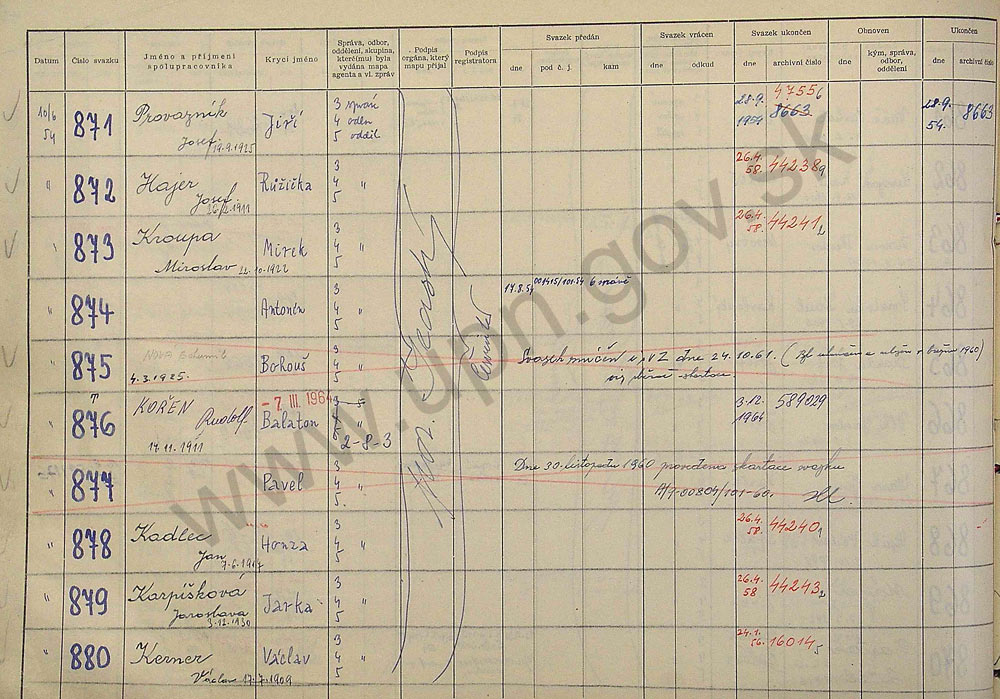 Datum
Číslo svazku
Jméno a příjmení
spolupracovníka
Krycí jméno
Správa, odbor,
oddělení, skupina,
které(mu) byla
vydána mapa
agenta a vl. zpráv
Podpis
orgána, který
mapu přijal
Podpis
registratora
Svazek předán
dne
pod č. j.
kam
Svazek vrácen
dne
odkud
Svazek ukončen
dne
archivní číslo
Obnoven
dne
kým, správa,
odbor,
oddělení
Ukončen
dne
archivní číslo
10/6
54
871
Provazník
Josef 19.9.1925
Jiří
3 správa
4 oděn
5 oddíl
28.9.
1954
47556
8663
28.9.
54.
8663
" 872
Hajer
Josef
26/2.1911
Růžička
3
4 "
5
26.4.
58.
442389
" 873
Kroupa
Miroslav 22.10.1922
Mirek
3
4 "
5
26.4.
58.
442412
" 874
Antonín
3
4 "
5
17.8.54
001415/101-54 6 správě
" 875
Nova Bohumil
4.3.1925.
Bohouš
3
4 "
5
Svazek zničen u VZ dne 24.10.61.
1960)
viz běrač skartace
" 876
KOŘEN
Rudolf
17.11.1911
- 7. III. 1964
Balaton
3
2-8-3
3.12.
1964
589029
" 877
Pavel
3
4 "
5
Dne 30. listopadu 1960 provedena skartace svazku
A/7-00804/101-60.
" 878
Kadlec
Jan
7.6.1917
Honza
3
4 "
5
26.4.
58.
442401
" 879
Karpíšková
Jaroslava
3.12.1930
Jarka
3
4 "
5
26.4.
58
442432
" 880
Kerner
Václav 17.7.1909
Václav
3
4 "
5
24.1.
56.
160145
Červenka
www.upn.gov.sk